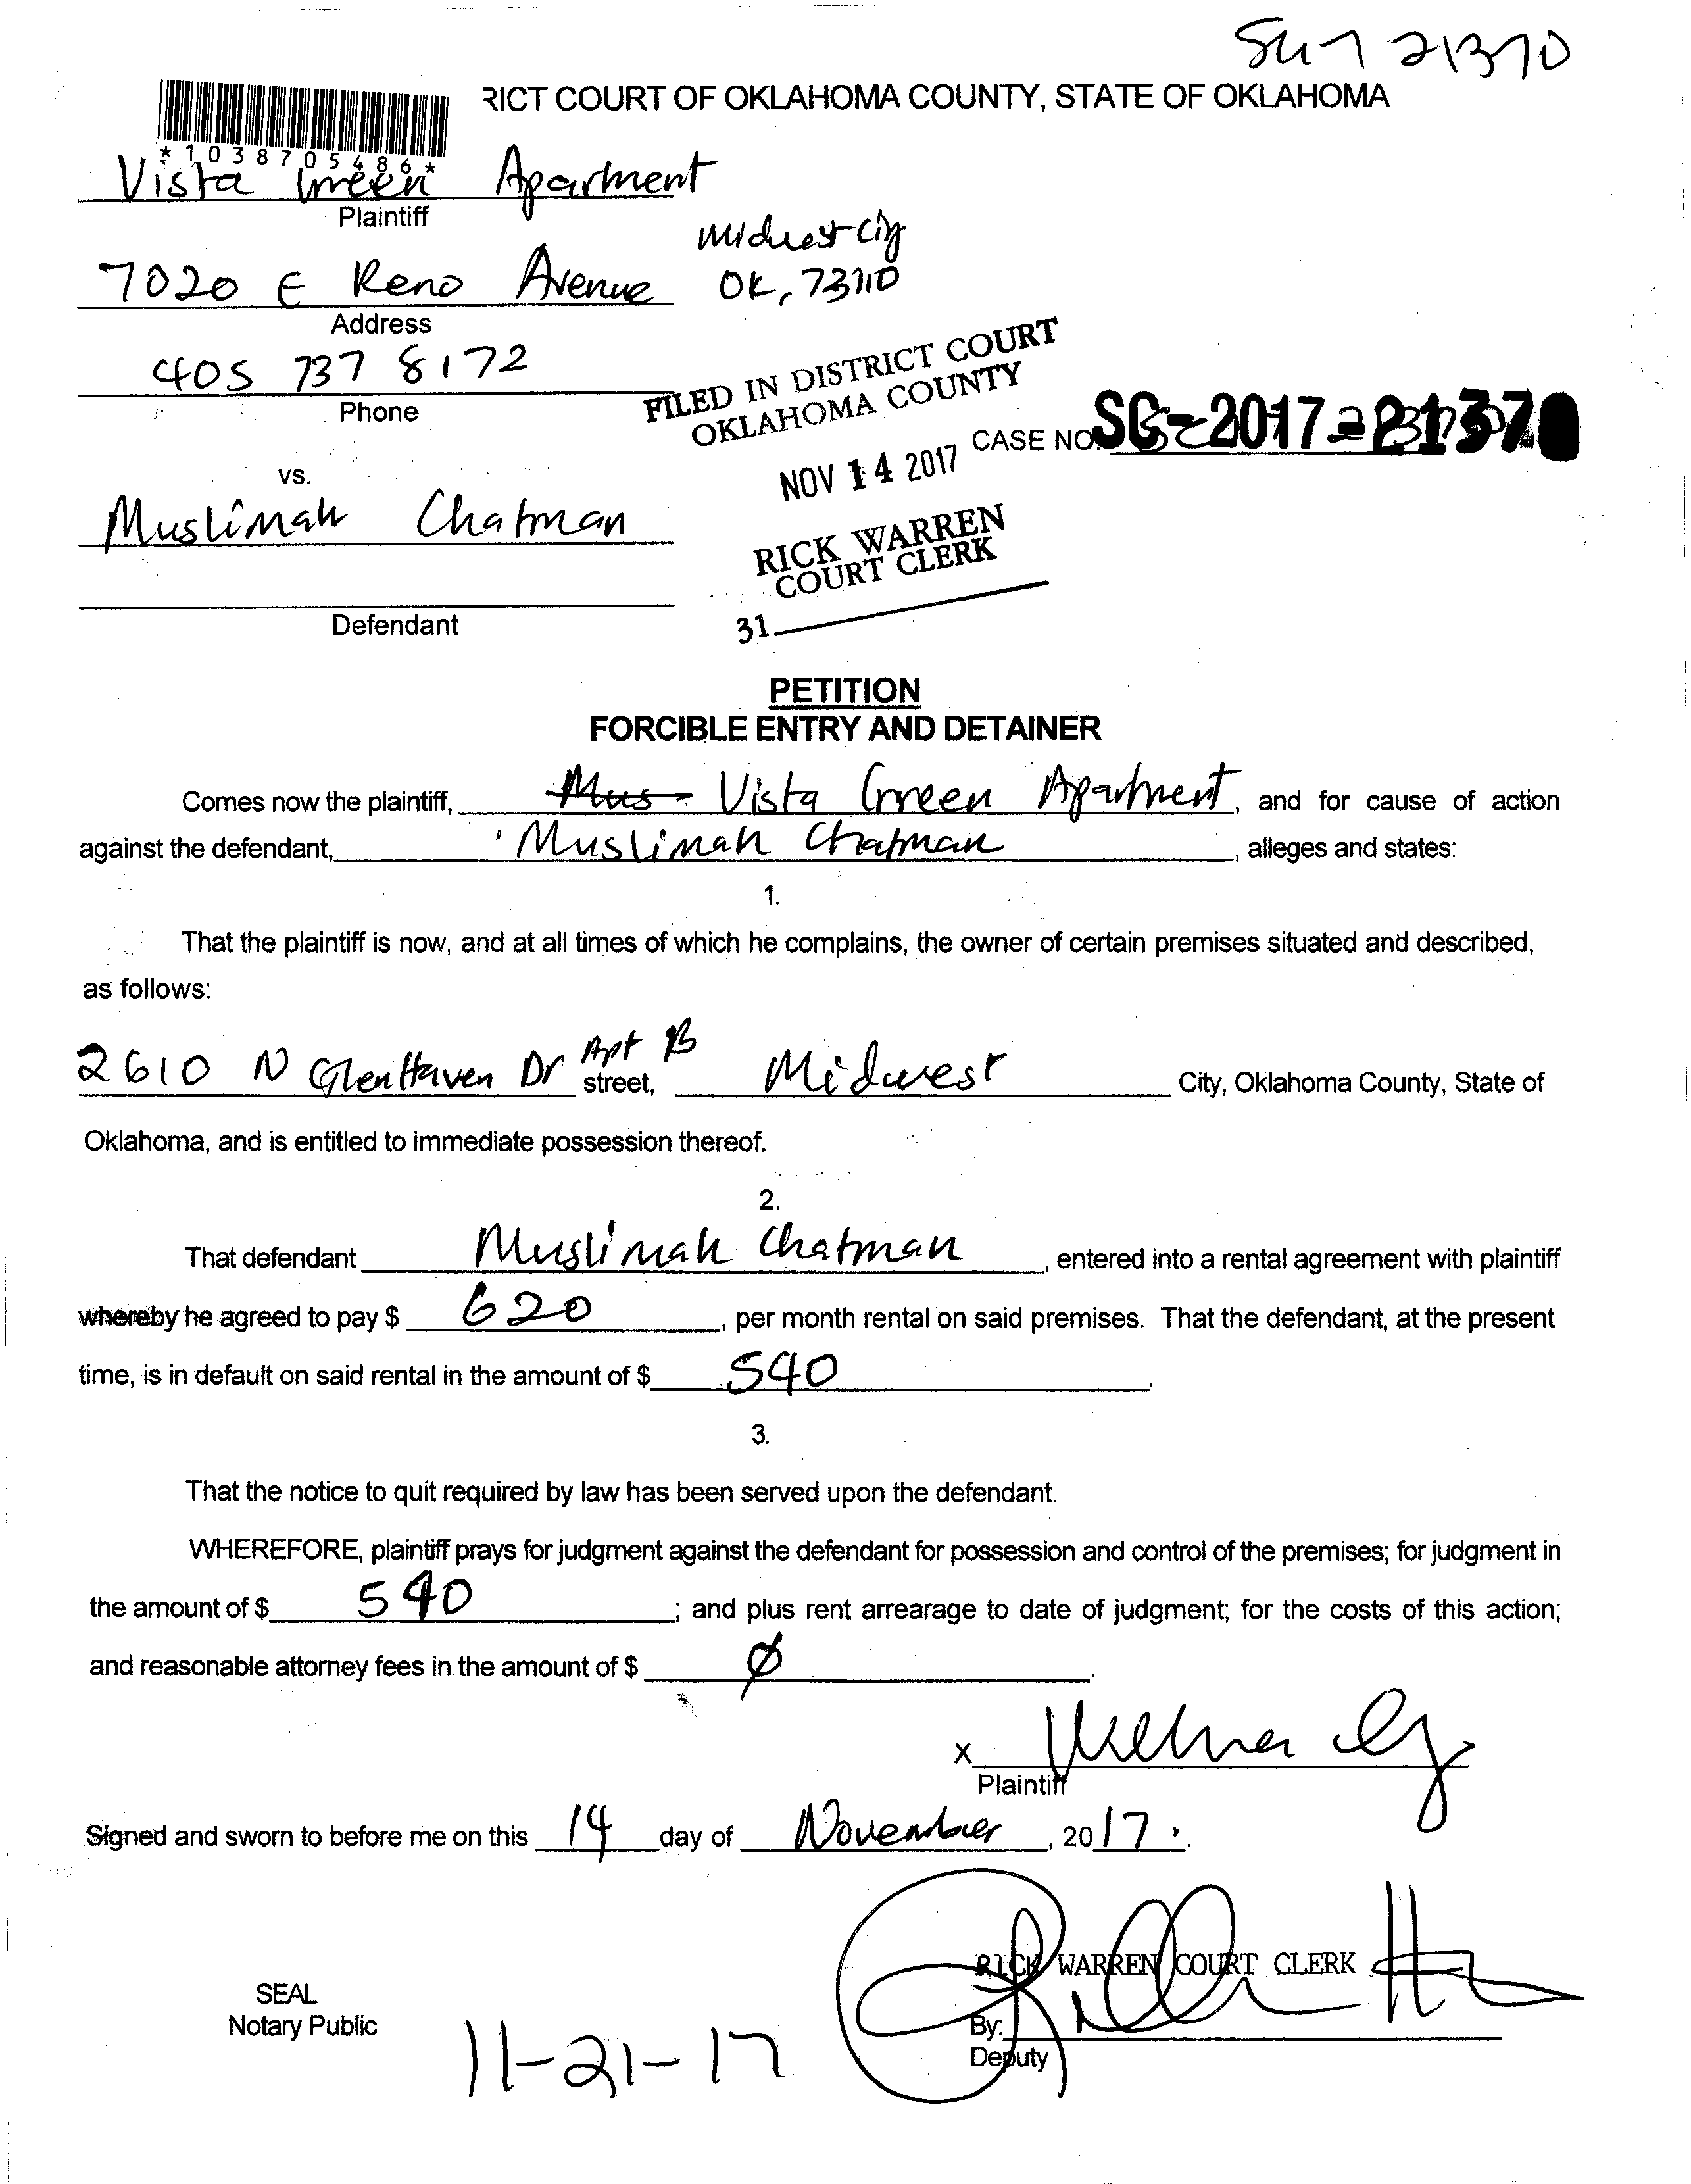 21370
RICT COURT OF OKLAHOMA COUNTY, STATE OF OKLAHOMA
*1038705486*
Vista Green Apartment
Plaintiff
Midwest City
7020 E Reno Avenue OK, 73110
Address
405 737 8172
Phone
FILED IN DISTRICT COURT
OKLAHOMA COUNTY
CASE NO. SC-2017-21370
NOV 14 2017
vs.
Muslimah Chatman
RICK WARREN
COURT CLERK
31
Defendant
PETITION
FORCIBLE ENTRY AND DETAINER
Comes now the plaintiff, Mus Vista Green Apartment, and for cause of action
against the defendant, Muslimah Chatman, alleges and states:
1.
That the plaintiff is now, and at all times of which he complains, the owner of certain premises situated and described,
as follows:
2610 N Glenhaven Dr Apt B street, Midwest City, Oklahoma County, State of
Oklahoma, and is entitled to immediate possession thereof.
2.
That defendant Muslimah Chatman, entered into a rental agreement with plaintiff
whereby he agreed to pay $ 620, per month rental on said premises. That the defendant, at the present
time, is in default on said rental in the amount of $ 540.
3.
That the notice to quit required by law has been served upon the defendant.
WHEREFORE, plaintiff prays for judgment against the defendant for possession and control of the premises; for judgment in
the amount of $ 540; and plus rent arrearage to date of judgment; for the costs of this action;
and reasonable attorney fees in the amount of $ Ø.
X
Plaintiff
Signed and sworn to before me on this 14 day of November, 2017.
RICK WARREN COURT CLERK
SEAL
Notary Public
By:
Deputy
11-21-17